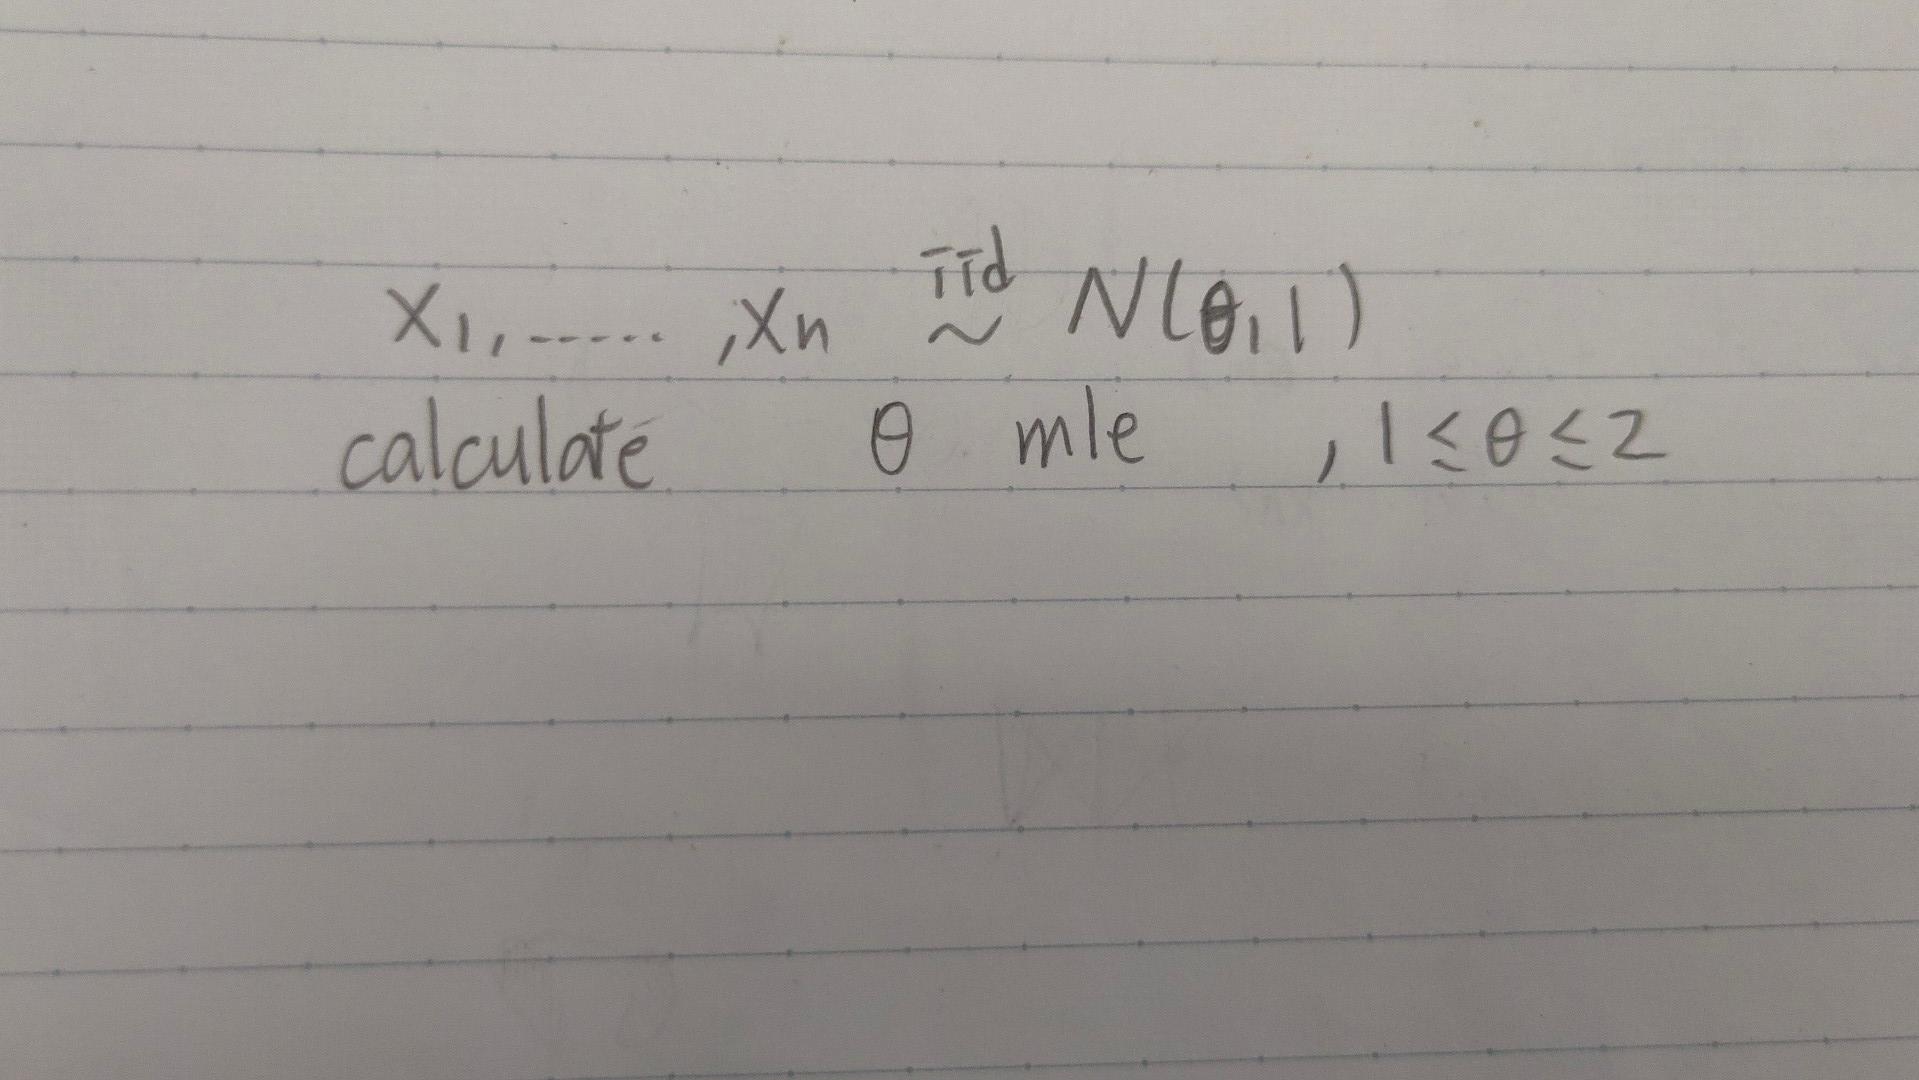 X1, ------ , Xn iid ~ N(θ, 1)
calculate θ mle , 1 ≤ θ ≤ 2